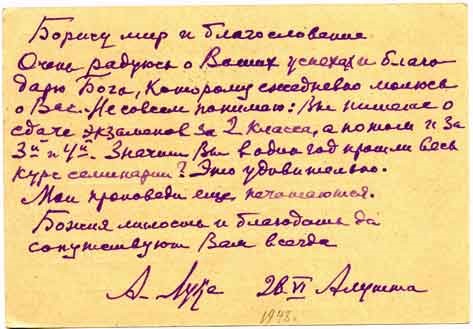 Борису мир и благословение.
Очень радуюсь о Ваших успехах и благо
дарю Бога, Которому ежедневно молюсь
о Вас. Не совсем понимаю: Вы пишете о
сдаче экзаменов за 2 класса, а потом и за
3й и 4й. Значит Вы в один год прошли весь
курс семинарии? Это удивительно.
Мои проповеди еще печатаются.
Божия милость и благодать да
сопутствуют Вам всегда
А. Лука 28 VI Алушта
1948.